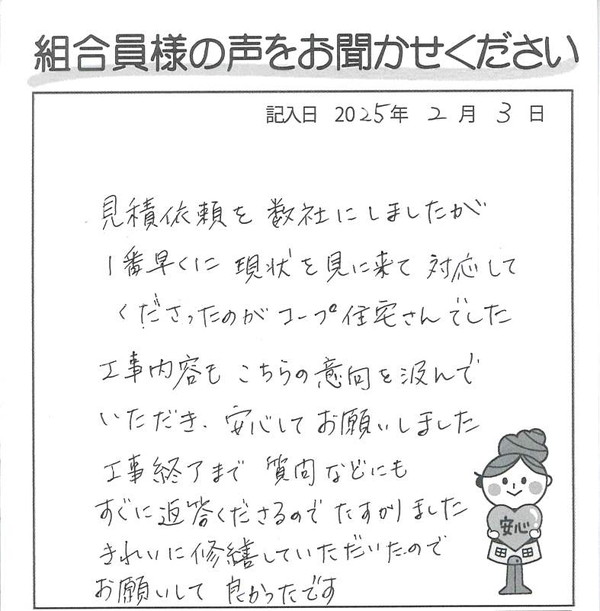 組合員様の声をお聞かせください
記入日 2025年 2月 3日
見積依頼を 数社にしましたが
1番早くに 現状を見に来て 対応して
くださったのが コープ住宅さんでした
工事内容も こちらの意向を汲んで
いただき、安心して お願いしました
工事終了まで 質問などにも
すぐに返答くださるので たすかりました
きれいに修繕していただいたので
お願いして 良かったです
安心